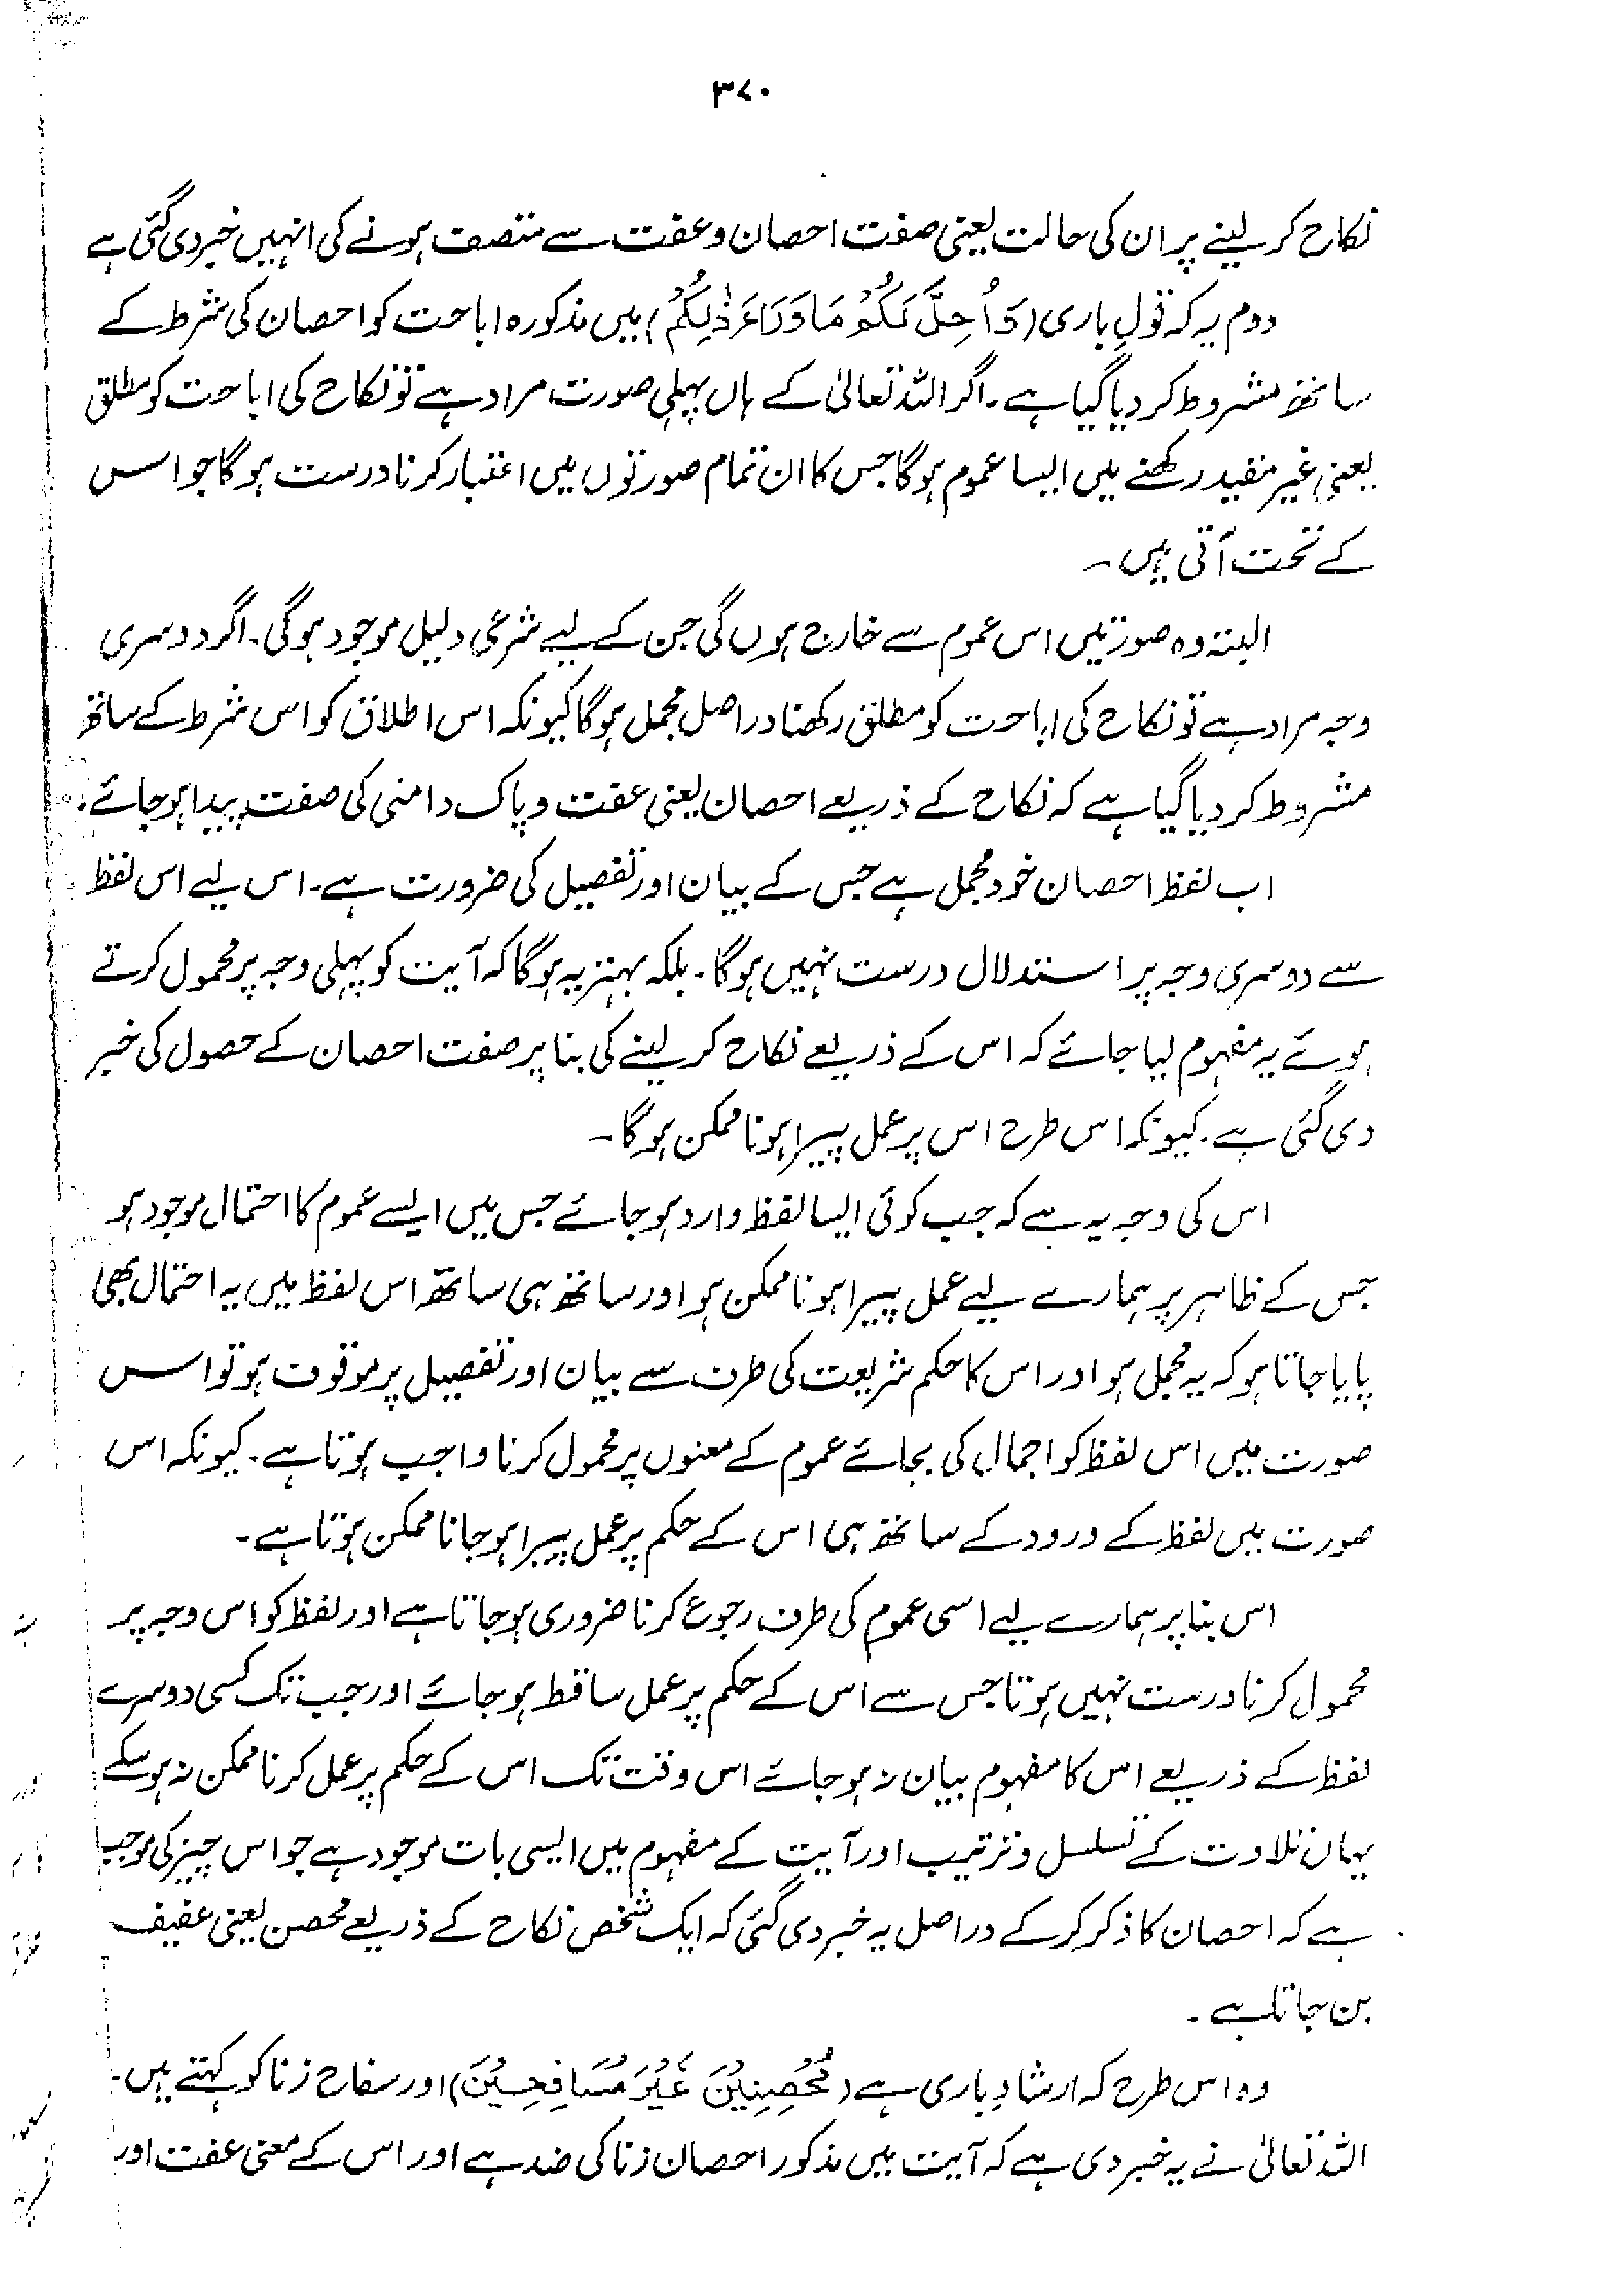 ۳۷۰
نکاح کر لینے پر ان کی حالت یعنی صفت احصان و عفت سے متصف ہونے کی انہیں خبر دی گئی ہے
دوم یہ کہ قولِ باری (وَاُحِلَّ لَکُمْ مَا وَرَاءَ ذٰلِکُمْ) میں مذکورہ اباحت کو احصان کی شرط کے
ساتھ مشروط کر دیا گیا ہے۔ اگر اللہ تعالیٰ کے ہاں پہلی صورت مراد ہے تو نکاح کی اباحت کو مطلق
یعنی غیر مقید رکھنے میں ایسا عموم ہوگا جس کا ان تمام صورتوں میں اعتبار کرنا درست ہوگا جو اس
کے تحت آتی ہیں۔
البتہ وہ صورتیں اس عموم سے خارج ہوں گی جن کے لیے شرعی دلیل موجود ہوگی۔ اگر دوسری
وجہ مراد ہے تو نکاح کی اباحت کو مطلق رکھنا دراصل مجمل ہوگا کیونکہ اس اطلاق کو اس شرط کے ساتھ
مشروط کر دیا گیا ہے کہ نکاح کے ذریعے احصان یعنی عفت و پاک دامنی کی صفت پیدا ہو جائے۔
اب لفظ احصان خود مجمل ہے جس کے بیان اور تفصیل کی ضرورت ہے۔ اس لیے اس لفظ
سے دوسری وجہ پر استدلال درست نہیں ہوگا۔ بلکہ بہتر یہ ہوگا کہ آیت کو پہلی وجہ پر محمول کرتے
ہوئے یہ مفہوم لیا جائے کہ اس کے ذریعے نکاح کر لینے کی بنا پر صفت احصان کے حصول کی خبر
دی گئی ہے۔ کیونکہ اس طرح اس پر عمل پیرا ہونا ممکن ہوگا۔
اس کی وجہ یہ ہے کہ جب کوئی ایسا لفظ وارد ہو جائے جس میں ایسے عموم کا احتمال موجود ہو
جس کے ظاہر پر ہمارے لیے عمل پیرا ہونا ممکن ہو اور ساتھ ہی ساتھ اس لفظ میں یہ احتمال بھی
پایا جاتا ہو کہ یہ مجمل ہو اور اس کا حکم شریعت کی طرف سے بیان اور تفصیل پر موقوف ہو تو اس
صورت میں اس لفظ کو اجمال کی بجائے عموم کے معنوں پر محمول کرنا واجب ہوتا ہے۔ کیونکہ اس
صورت میں لفظ کے ورود کے ساتھ ہی اس کے حکم پر عمل پیرا ہو جانا ممکن ہوتا ہے۔
اس بنا پر ہمارے لیے اسی عموم کی طرف رجوع کرنا ضروری ہو جاتا ہے اور لفظ کو اس وجہ پر
محمول کرنا درست نہیں ہوتا جس سے اس کے حکم پر عمل ساقط ہو جائے اور جب تک کسی دوسرے
لفظ کے ذریعے اس کا مفہوم بیان نہ ہو جائے اس وقت تک اس کے حکم پر عمل کرنا ممکن نہ ہو سکے
یہاں تلاوت کے تسلسل و ترتیب اور آیت کے مفہوم میں ایسی بات موجود ہے جو اس چیز کی موجب
ہے کہ احصان کا ذکر کر کے دراصل یہ خبر دی گئی کہ ایک شخص نکاح کے ذریعے محصن یعنی عفیف
بن جاتا ہے۔
وہ اس طرح کہ ارشادِ باری ہے (مُحْصِنِیْنَ غَیْرَ مُسَافِحِیْنَ) اور سفاح زنا کو کہتے ہیں۔
اللہ تعالیٰ نے یہ خبر دی ہے کہ آیت میں مذکور احصان زنا کی ضد ہے اور اس کے معنی عفت اور